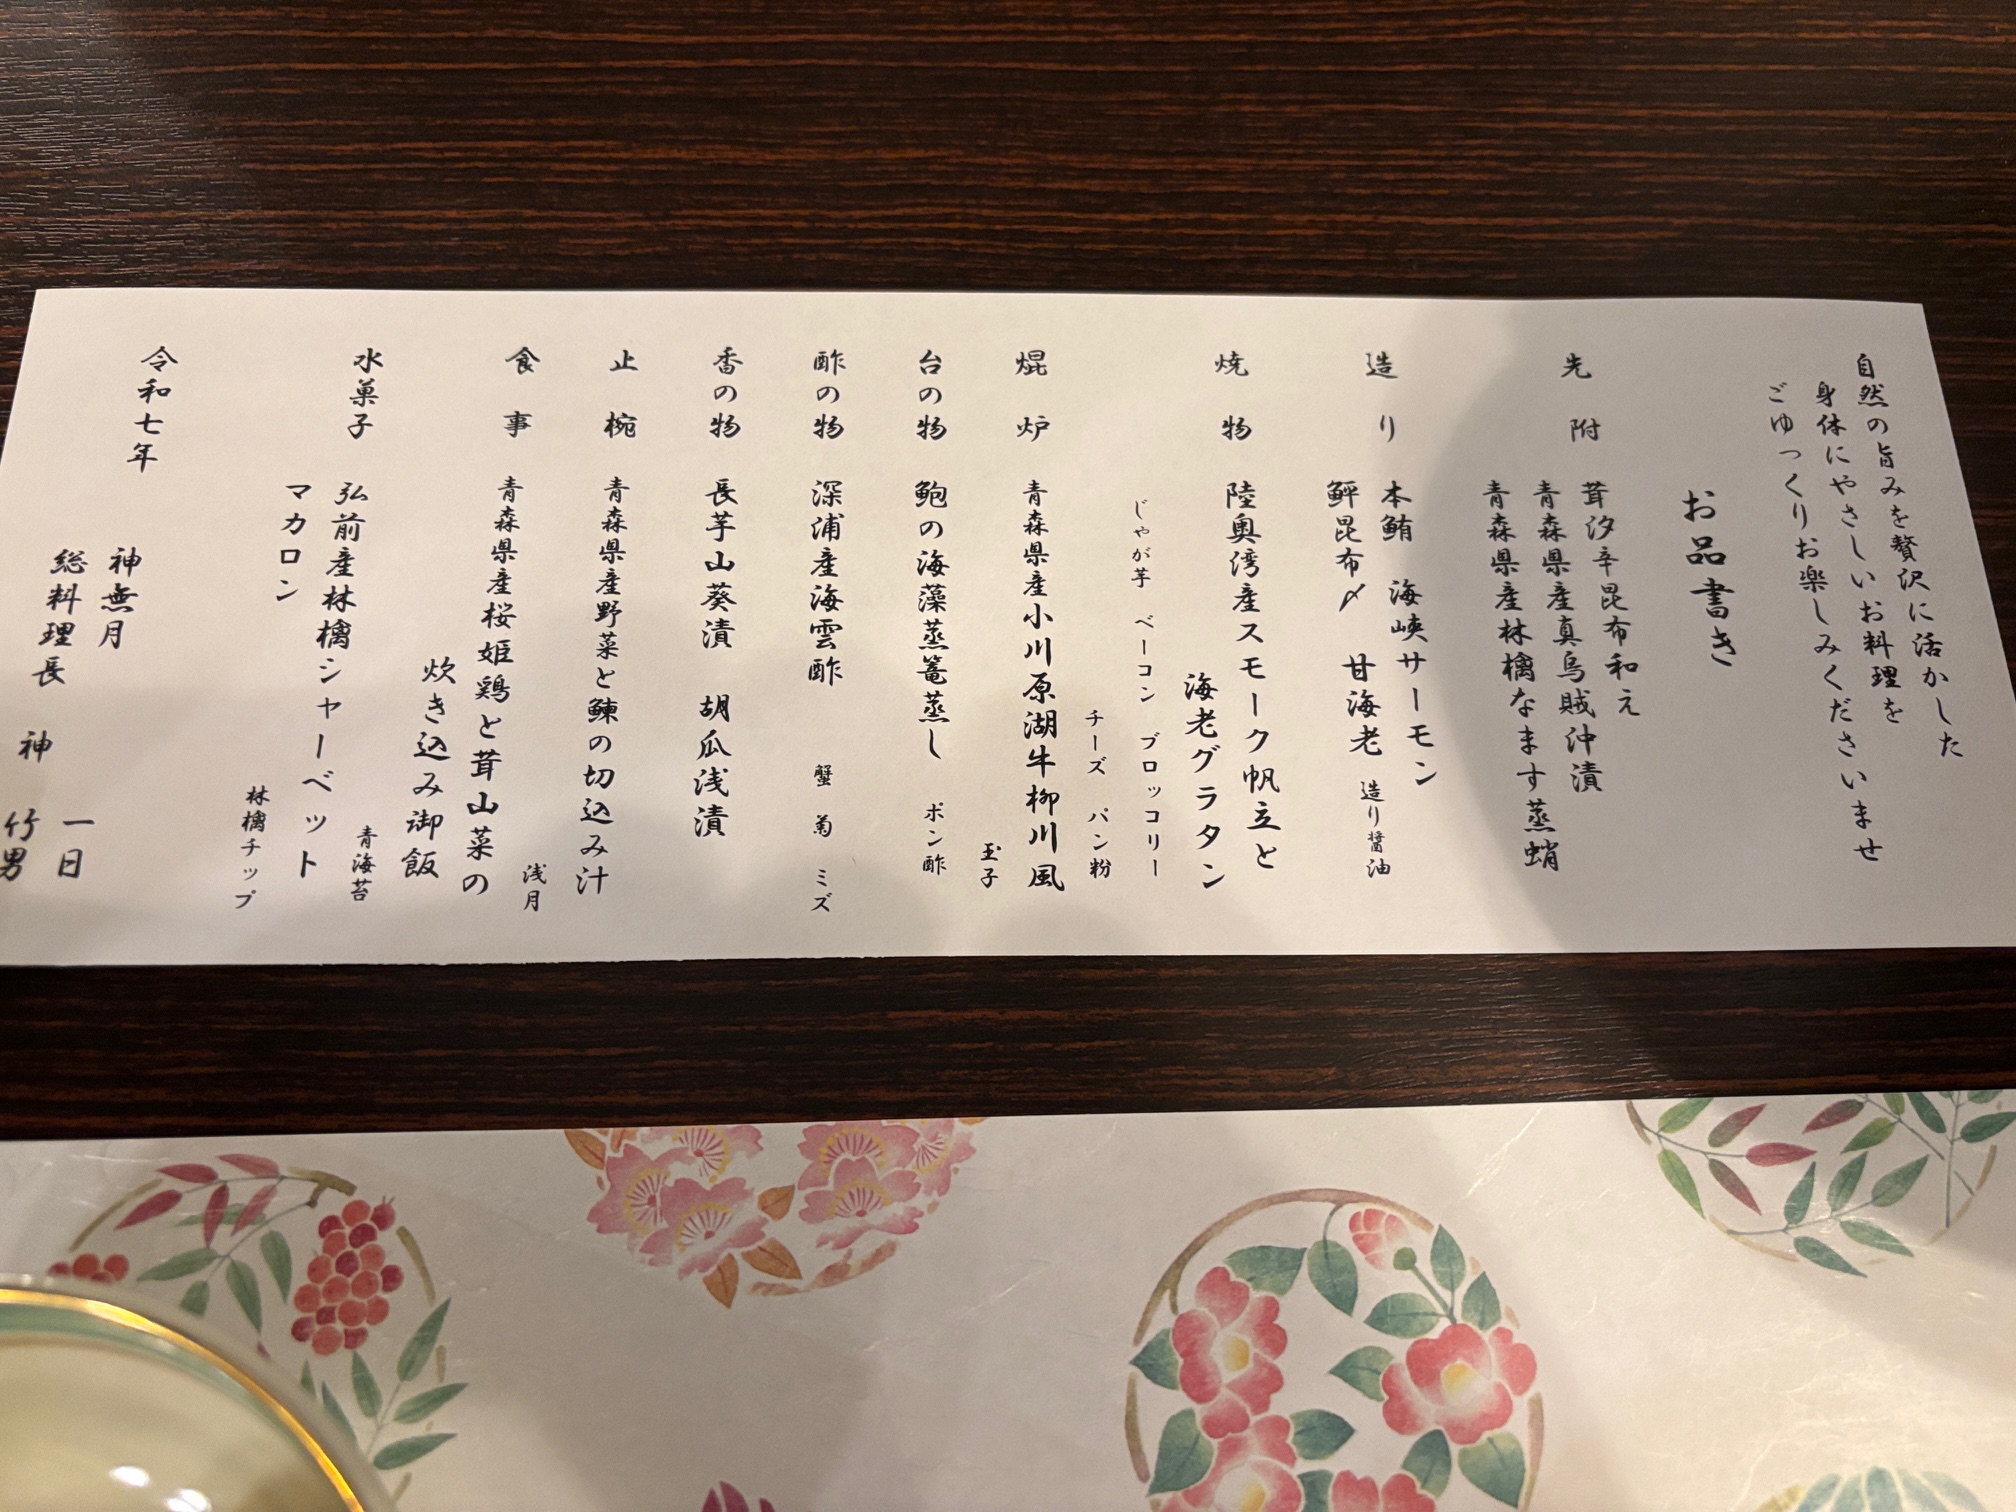 自然の旨みを贅沢に活かした
身体にやさしいお料理を
ごゆっくりお楽しみくださいませ
お品書き
先附 茸汐辛昆布和え
青森県産真烏賊沖漬
青森県産林檎なます蒸蛸
造り 本鮪 海峡サーモン
鮃昆布〆 甘海老 造り醤油
焼物 陸奥湾産スモーク帆立と
海老グラタン
じゃが芋 ベーコン ブロッコリー
チーズ パン粉
焜炉 青森県産小川原湖牛柳川風
玉子
台の物 鮑の海藻蒸篭蒸し ポン酢
酢の物 深浦産海雲酢 蟹 菊 ミズ
香の物 長芋山葵漬 胡瓜浅漬
止椀 青森県産野菜と鰊の切込み汁
浅月
食事 青森県産桜姫鶏と茸山菜の
炊き込み御飯
青海苔
水菓子 弘前産林檎シャーベット
マカロン
林檎チップ
令和七年
神無月 一日
総料理長 神 竹男